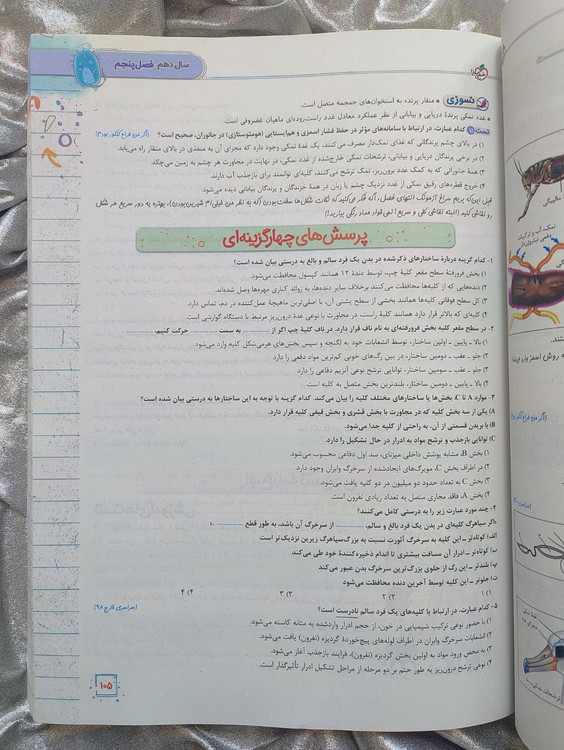 سال دهم فصل پنجم
دلسوزی ● منقار پرنده به استخوان‌های جمجمه متصل است.
● غدد نمکی پرندهٔ دریایی و بیابانی از نظر عملکرد معادل غدد راست‌روده‌ای ماهیان غضروفی است.
تست کدام عبارت، در ارتباط با سامانه‌های مؤثر در حفظ فشار اسمزی و هم‌ایستایی (هومئوستازی) در جانوران، صحیح است؟
۱) در بالای چشم پرندگانی که غذای نمک‌دار مصرف می‌کنند، یک غدهٔ نمکی وجود دارد که مجرای آن به منفذی در بالای منقار راه می‌یابد.
۲) در برخی پرندگان دریایی و بیابانی، ترشحات نمکی خارج‌شده از غدد نمکی، در نهایت در مجاورت هر چشم به زمین می‌چکد.
۳) همهٔ جانورانی که به کمک غدد برون‌ریز، نمک ترشح می‌کنند، کلیه‌ای توانمند برای بازجذب آب دارند.
۴) خروج قطره‌های رقیق نمکی از غدد نزدیک چشم یا زبان در همهٔ خزندگان و پرندگان بیابانی دیده می‌شود.
قبل این‌که بریم سراغ آزمونک انتهای فصل، اگه فکر می‌کنید که کات شکل‌ها سخت بودن (که به نظر من خیلی‌ام شیرین بودن)، بهتره یه دور سریع هر شکل
رو نقاشی کنید
پرسش‌های چهارگزینه‌ای
۱- کدام گزینه دربارهٔ ساختارهای ذکرشده در بدن یک فرد سالم و بالغ به درستی بیان شده است؟
۱) بخش فرورفتهٔ سطح مقعر کلیهٔ چپ، توسط دندهٔ ۱۲ همانند کپسول محافظت می‌شود.
۲) دنده‌هایی که از کلیه‌ها محافظت می‌کنند برخلاف سایر دنده‌ها، به زوائد کناری مهره‌ها وصل شده‌اند.
۳) کل سطح فوقانی کلیه‌ها همانند بخشی از سطح پشتی آن، با اصلی‌ترین ماهیچهٔ عمل‌کننده در دم، تماس دارد.
۴) کلیه‌ای که بالاتر قرار دارد همانند کلیهٔ راست، در مجاورت با نوعی غدهٔ درون‌ریز مرتبط با دستگاه گوارشی است.
۲- در سطح مقعر کلیه بخش فرورفته‌ای به نام ناف قرار دارد. در ناف کلیهٔ چپ اگر از ........ به سمت ........ حرکت کنیم، ........ .
۱) بالا - پایین - اولین ساختار، توسط انشعابات خود به لگنچه و سپس بخش‌های هرمی‌شکل کلیه وارد می‌شود.
۲) جلو - عقب - دومین ساختار، در بین رگ‌های خونی کم‌ترین مواد دفعی را دارد.
۳) جلو - عقب - سومین ساختار، توانایی ترشح نوعی آنزیم دفاعی را دارد.
۴) بالا - پایین - دومین ساختار، بلندترین بخش متصل به کلیه است.
۳- موارد A تا C، بخش‌ها یا ساختارهای مختلف کلیه را بیان می‌کند. کدام گزینه با توجه به این ساختارها به درستی بیان شده است؟
A) یکی از سه بخش کلیه که در مجاورت با بخش قشری و بخش قیفی کلیه قرار دارد.
B) با بریدن قسمتی از آن، به راحتی از کلیه جدا می‌شود.
C) توانایی بازجذب و ترشح مواد به ادرار در حال تشکیل را دارد.
۱) بخش B، مشابه پوشش داخلی میزنای، سد اول دفاعی محسوب می‌شود.
۲) در اطراف بخش C، مویرگ‌های ایجادشده از سرخرگ وابران وجود دارد.
۳) بخش C به تعداد حدود دو میلیون در دو کلیه یافت می‌شود.
۴) بخش A، فاقد مجاری متصل به تعداد زیادی نفرون است.
۴- چند مورد عبارت زیر را به درستی کامل می‌کنند؟
«اگر سیاهرگ کلیه‌ای در بدن یک فرد بالغ و سالم، ........ از سرخرگ آن باشد، به طور قطع ........ »
الف) کوتاه‌تر ـ این کلیه به سرخرگ آئورت نسبت به بزرگ‌سیاهرگ زیرین نزدیک‌تر است
ب) کوتاه‌تر ـ ادرار آن مسافت بیشتری تا اندام ذخیره‌کنندهٔ خود طی می‌کند
پ) بلندتر ـ این رگ از جلوی بزرگ‌ترین سرخرگ بدن عبور می‌کند
ت) جلوتر ـ این کلیه توسط آخرین دنده محافظت می‌شود
۱) ۱ ۲) ۲ ۳) ۳ ۴) ۴
۵- کدام عبارت، در ارتباط با کلیه‌های یک فرد سالم نادرست است؟ (سراسری خارج ۹۸)
۱) با حضور نوعی ترکیب شیمیایی در خون، از حجم ادرار واردشده به مثانه کاسته می‌شود.
۲) انشعابات سرخرگ وابران در اطراف لوله‌های پیچ‌خوردهٔ گردیزه (نفرون) یافت می‌شود.
۳) به محض ورود مواد به اولین بخش گردیزه (نفرون)، فرایند بازجذب آغاز می‌شود.
۴) نوعی ترشح درون‌ریز به طور حتم بر دو مرحله از مراحل تشکیل ادرار تأثیرگذار است.
۱۰۵